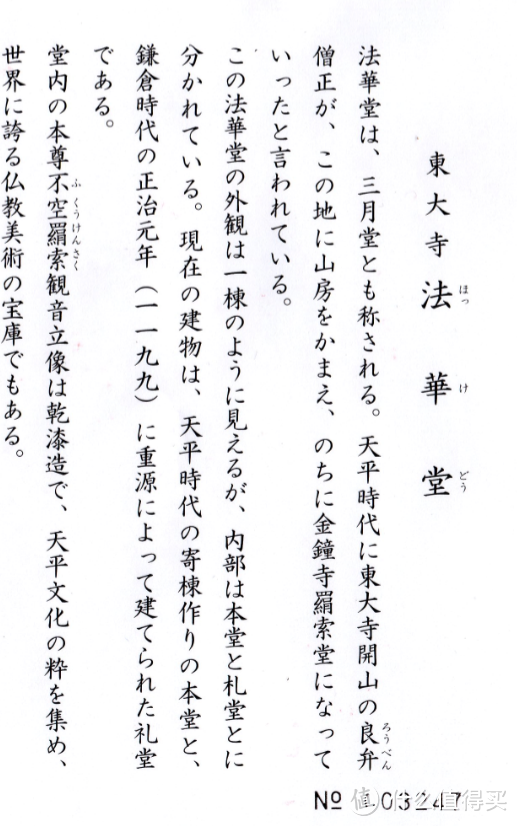 東大寺法華堂
ほっ け どう
法華堂は、三月堂とも称される。天平時代に東大寺開山の良弁
ろうべん
僧正が、この地に山房をかまえ、のちに金鐘寺羂索堂になって
いったと言われている。
この法華堂の外観は一棟のように見えるが、内部は本堂と札堂とに
分かれている。現在の建物は、天平時代の寄棟作りの本堂と、
鎌倉時代の正治元年（一一九九）に重源によって建てられた礼堂
である。
堂内の本尊不空羂索観音立像は乾漆造で、天平文化の粋を集め、
ふくうけんさく
世界に誇る仏教美術の宝庫でもある。
№ 103247
值 什么值得买